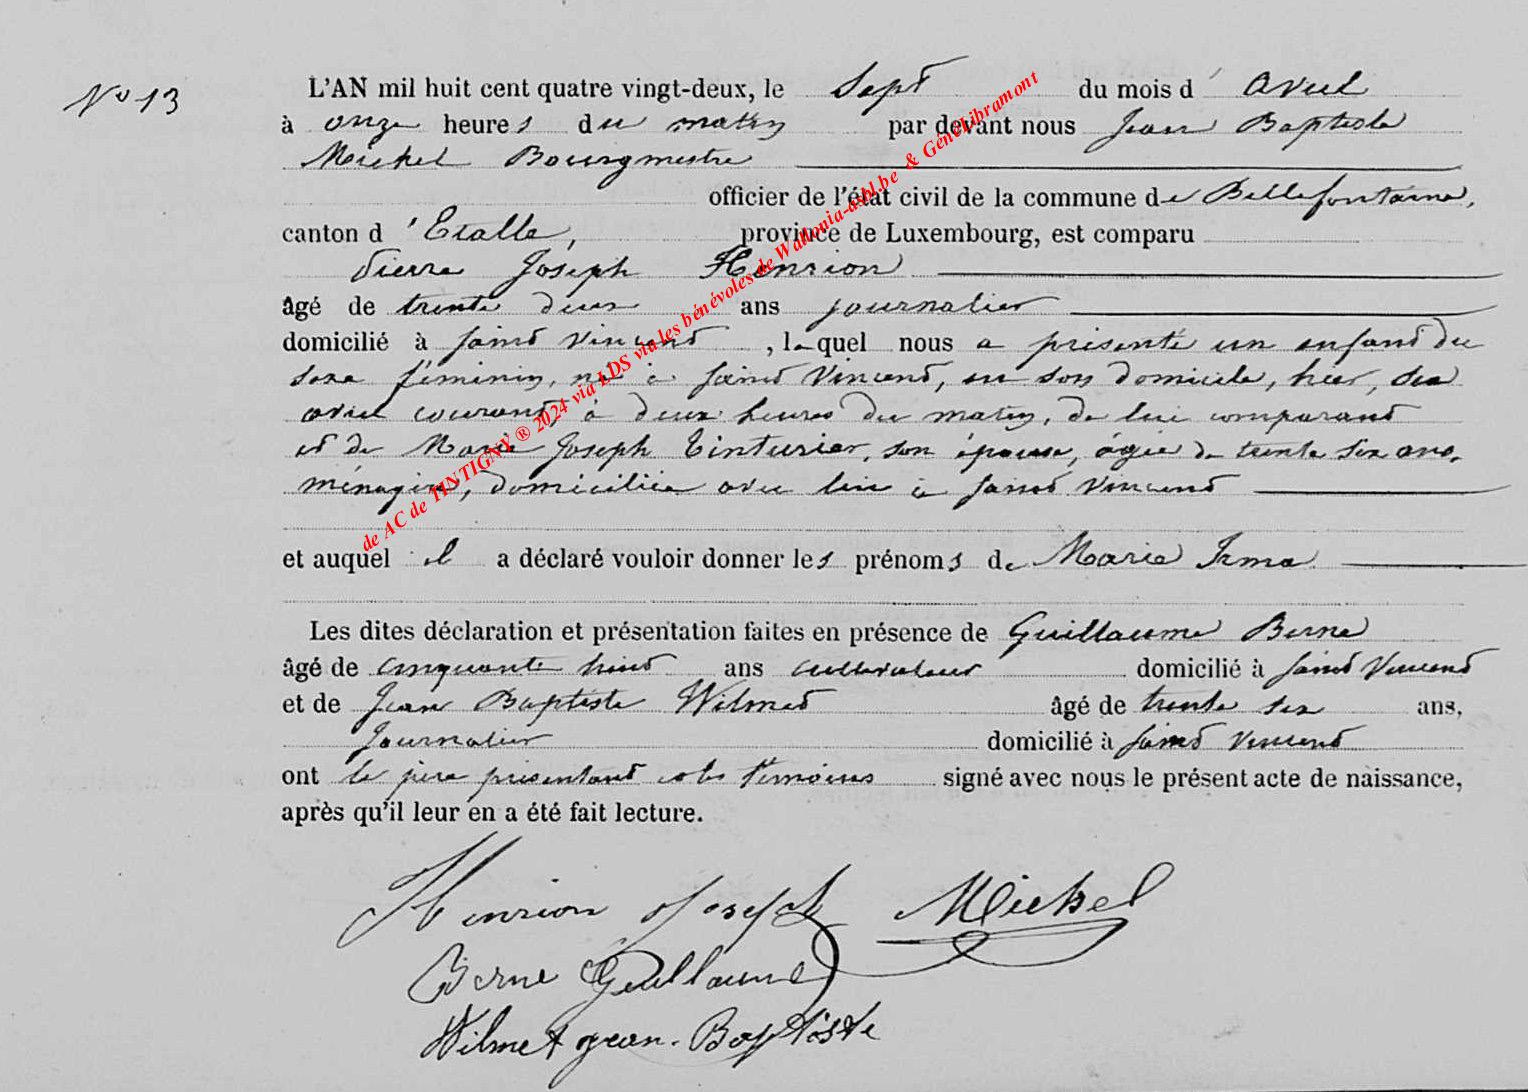 N° 13
L'AN mil huit cent quatre vingt-deux, le Sept du mois d'avril
à onze heures du matin par devant nous Jean Baptiste
Michel Bourgmestre
officier de l'état civil de la commune de Bellefontaine,
canton d'Etalle, province de Luxembourg, est comparu
Pierre Joseph Henrion
âgé de trente deux ans journalier
domicilié à Saint Vincent, lequel nous a présenté un enfant du
sexe féminin, né à Saint Vincent, en son domicile, hier, six
avril courant, à deux heures du matin, de lui comparant
et de Marie Joseph Tinturier, son épouse, âgée de trente six ans,
ménagère, domiciliée avec lui à Saint Vincent
et auquel il a déclaré vouloir donner les prénoms de Marie Irma
Les dites déclaration et présentation faites en présence de Guillaume Berne
âgé de cinquante huit ans cultivateur domicilié à Saint Vincent
et de Jean Baptiste Wilmet âgé de trente six ans,
Journalier domicilié à Saint Vincent
ont le père présentant et les témoins signé avec nous le présent acte de naissance,
après qu'il leur en a été fait lecture.
Henrion Joseph Michel
Berne Guillaume
Wilmet jean-Baptiste
de AC de TINTIGNY ® 2024 via LDS via les bénévoles de Wallonia-asbl.be & GénéaLibramont